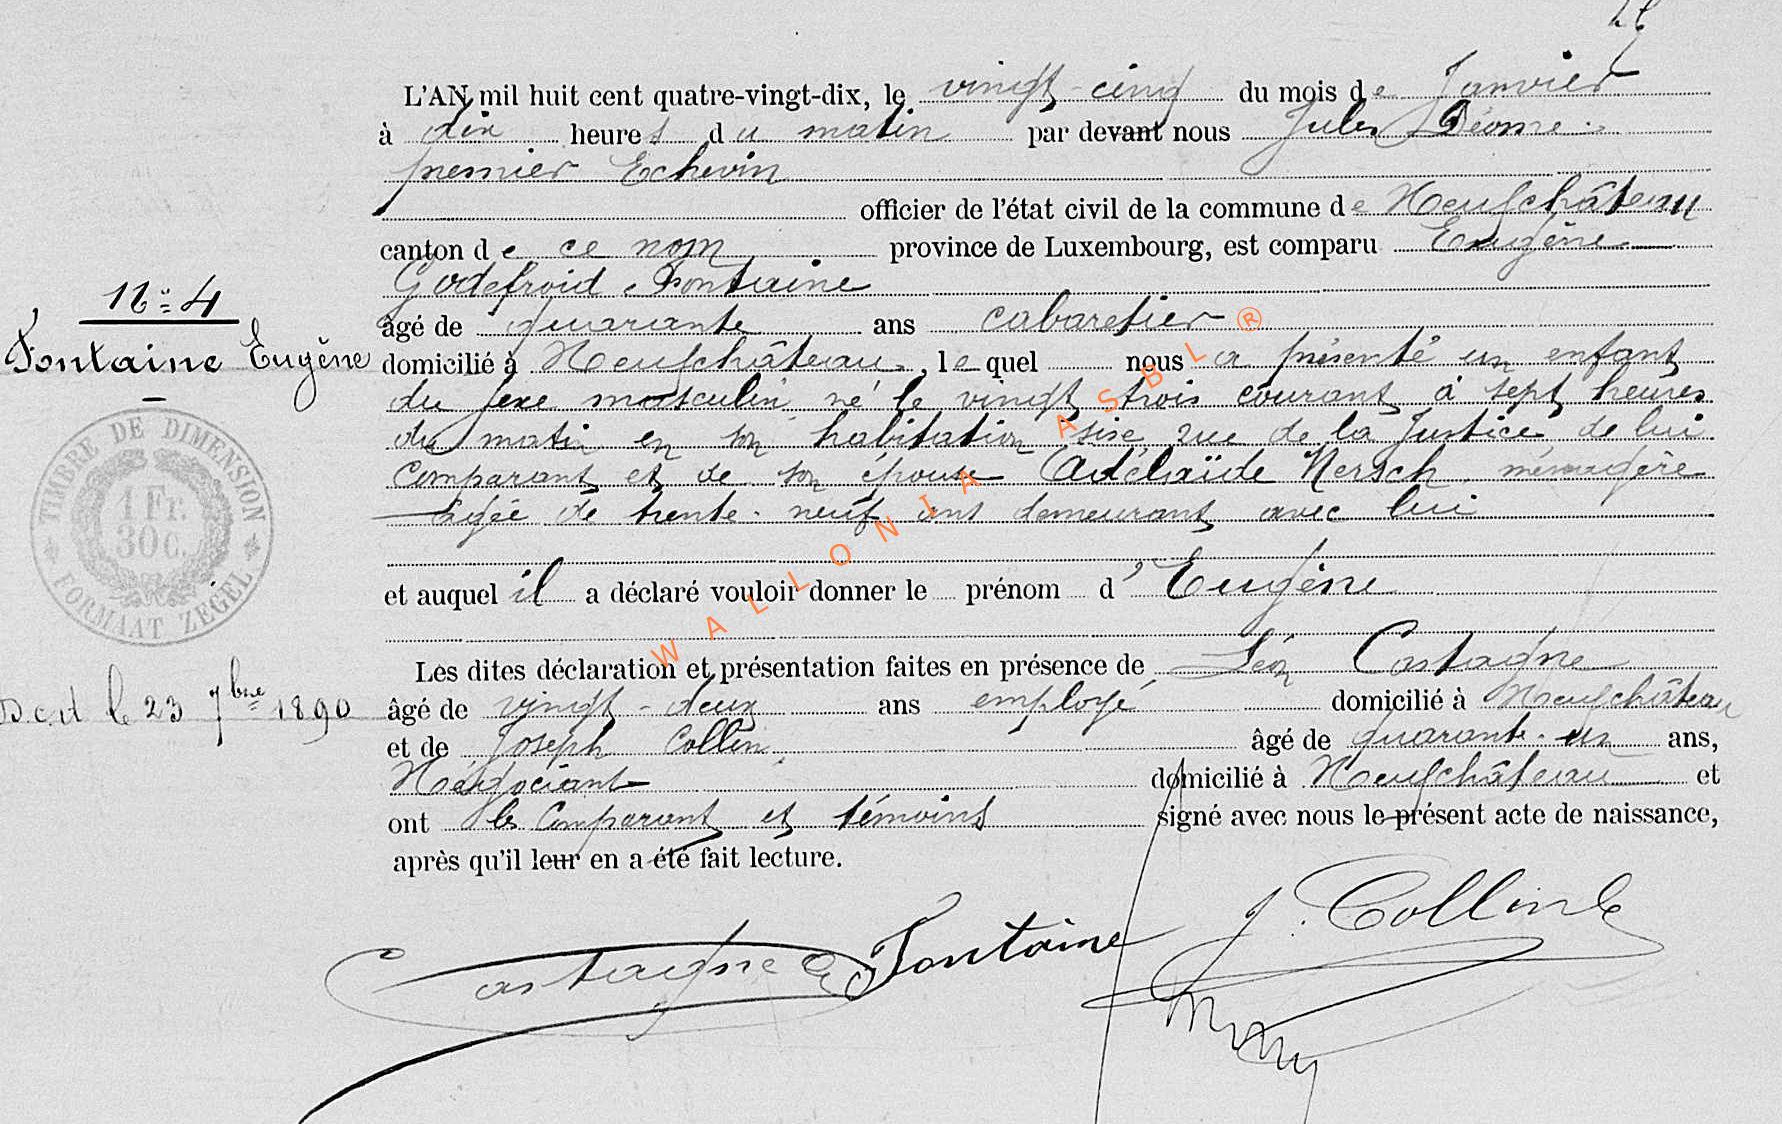 L'AN mil huit cent quatre-vingt-dix, le vingt-cinq du mois de Janvier
à dix heures du matin par devant nous Jules
premier Echevin
officier de l'état civil de la commune de Neufchâteau
canton de ce nom province de Luxembourg, est comparu Eugène
Godefroid Fontaine
âgé de quarante ans cabaretier
domicilié à Neufchâteau, lequel nous a présenté un enfant
du sexe masculin né le vingt trois courant à sept heures
du matin en son habitation sise rue de la Justice de lui
comparant et de son épouse Adélaïde Nersch ménagère
agée de trente-neuf ans demeurant avec lui
et auquel il a déclaré vouloir donner le prénom d'Eugène
Les dites déclaration et présentation faites en présence de Léon Castagne
âgé de vingt-deux ans employé domicilié à Neufchâteau
et de Joseph Collin âgé de quarante-un ans,
Négociant domicilié à Neufchâteau et
ont le Comparant et témoins signé avec nous le présent acte de naissance,
après qu'il leur en a été fait lecture.
N° 4
Fontaine Eugène
TIMBRE DE DIMENSION
1 Fr.
30 C.
FORMAAT ZEGEL
Dcd le 23 7bre 1890
Castagne
Fontaine
J. Collin
WALLONIA ASBL ®